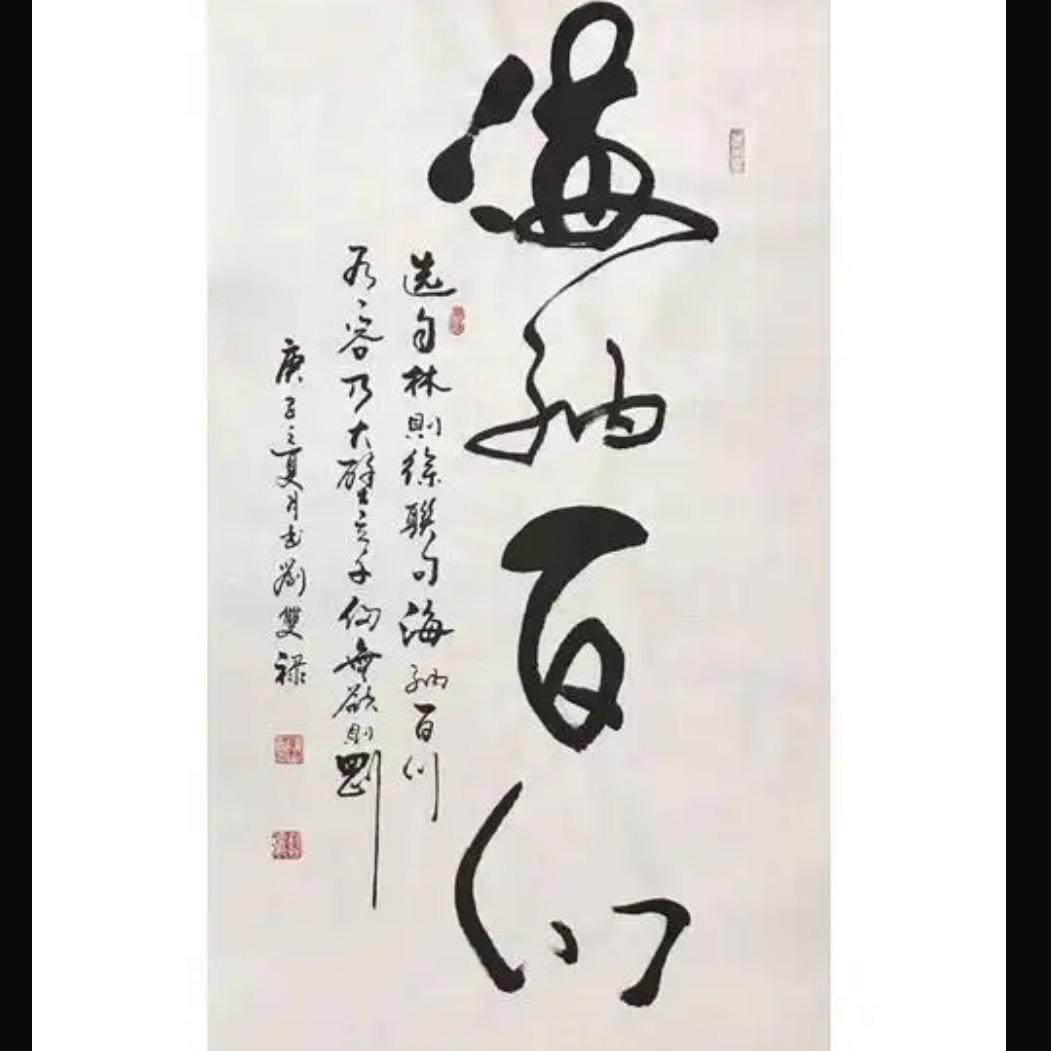 海纳百川
选句林則徐聯句海纳百川
有容乃大壁立千仞無欲則剛
庚子之夏月书劉雙禄